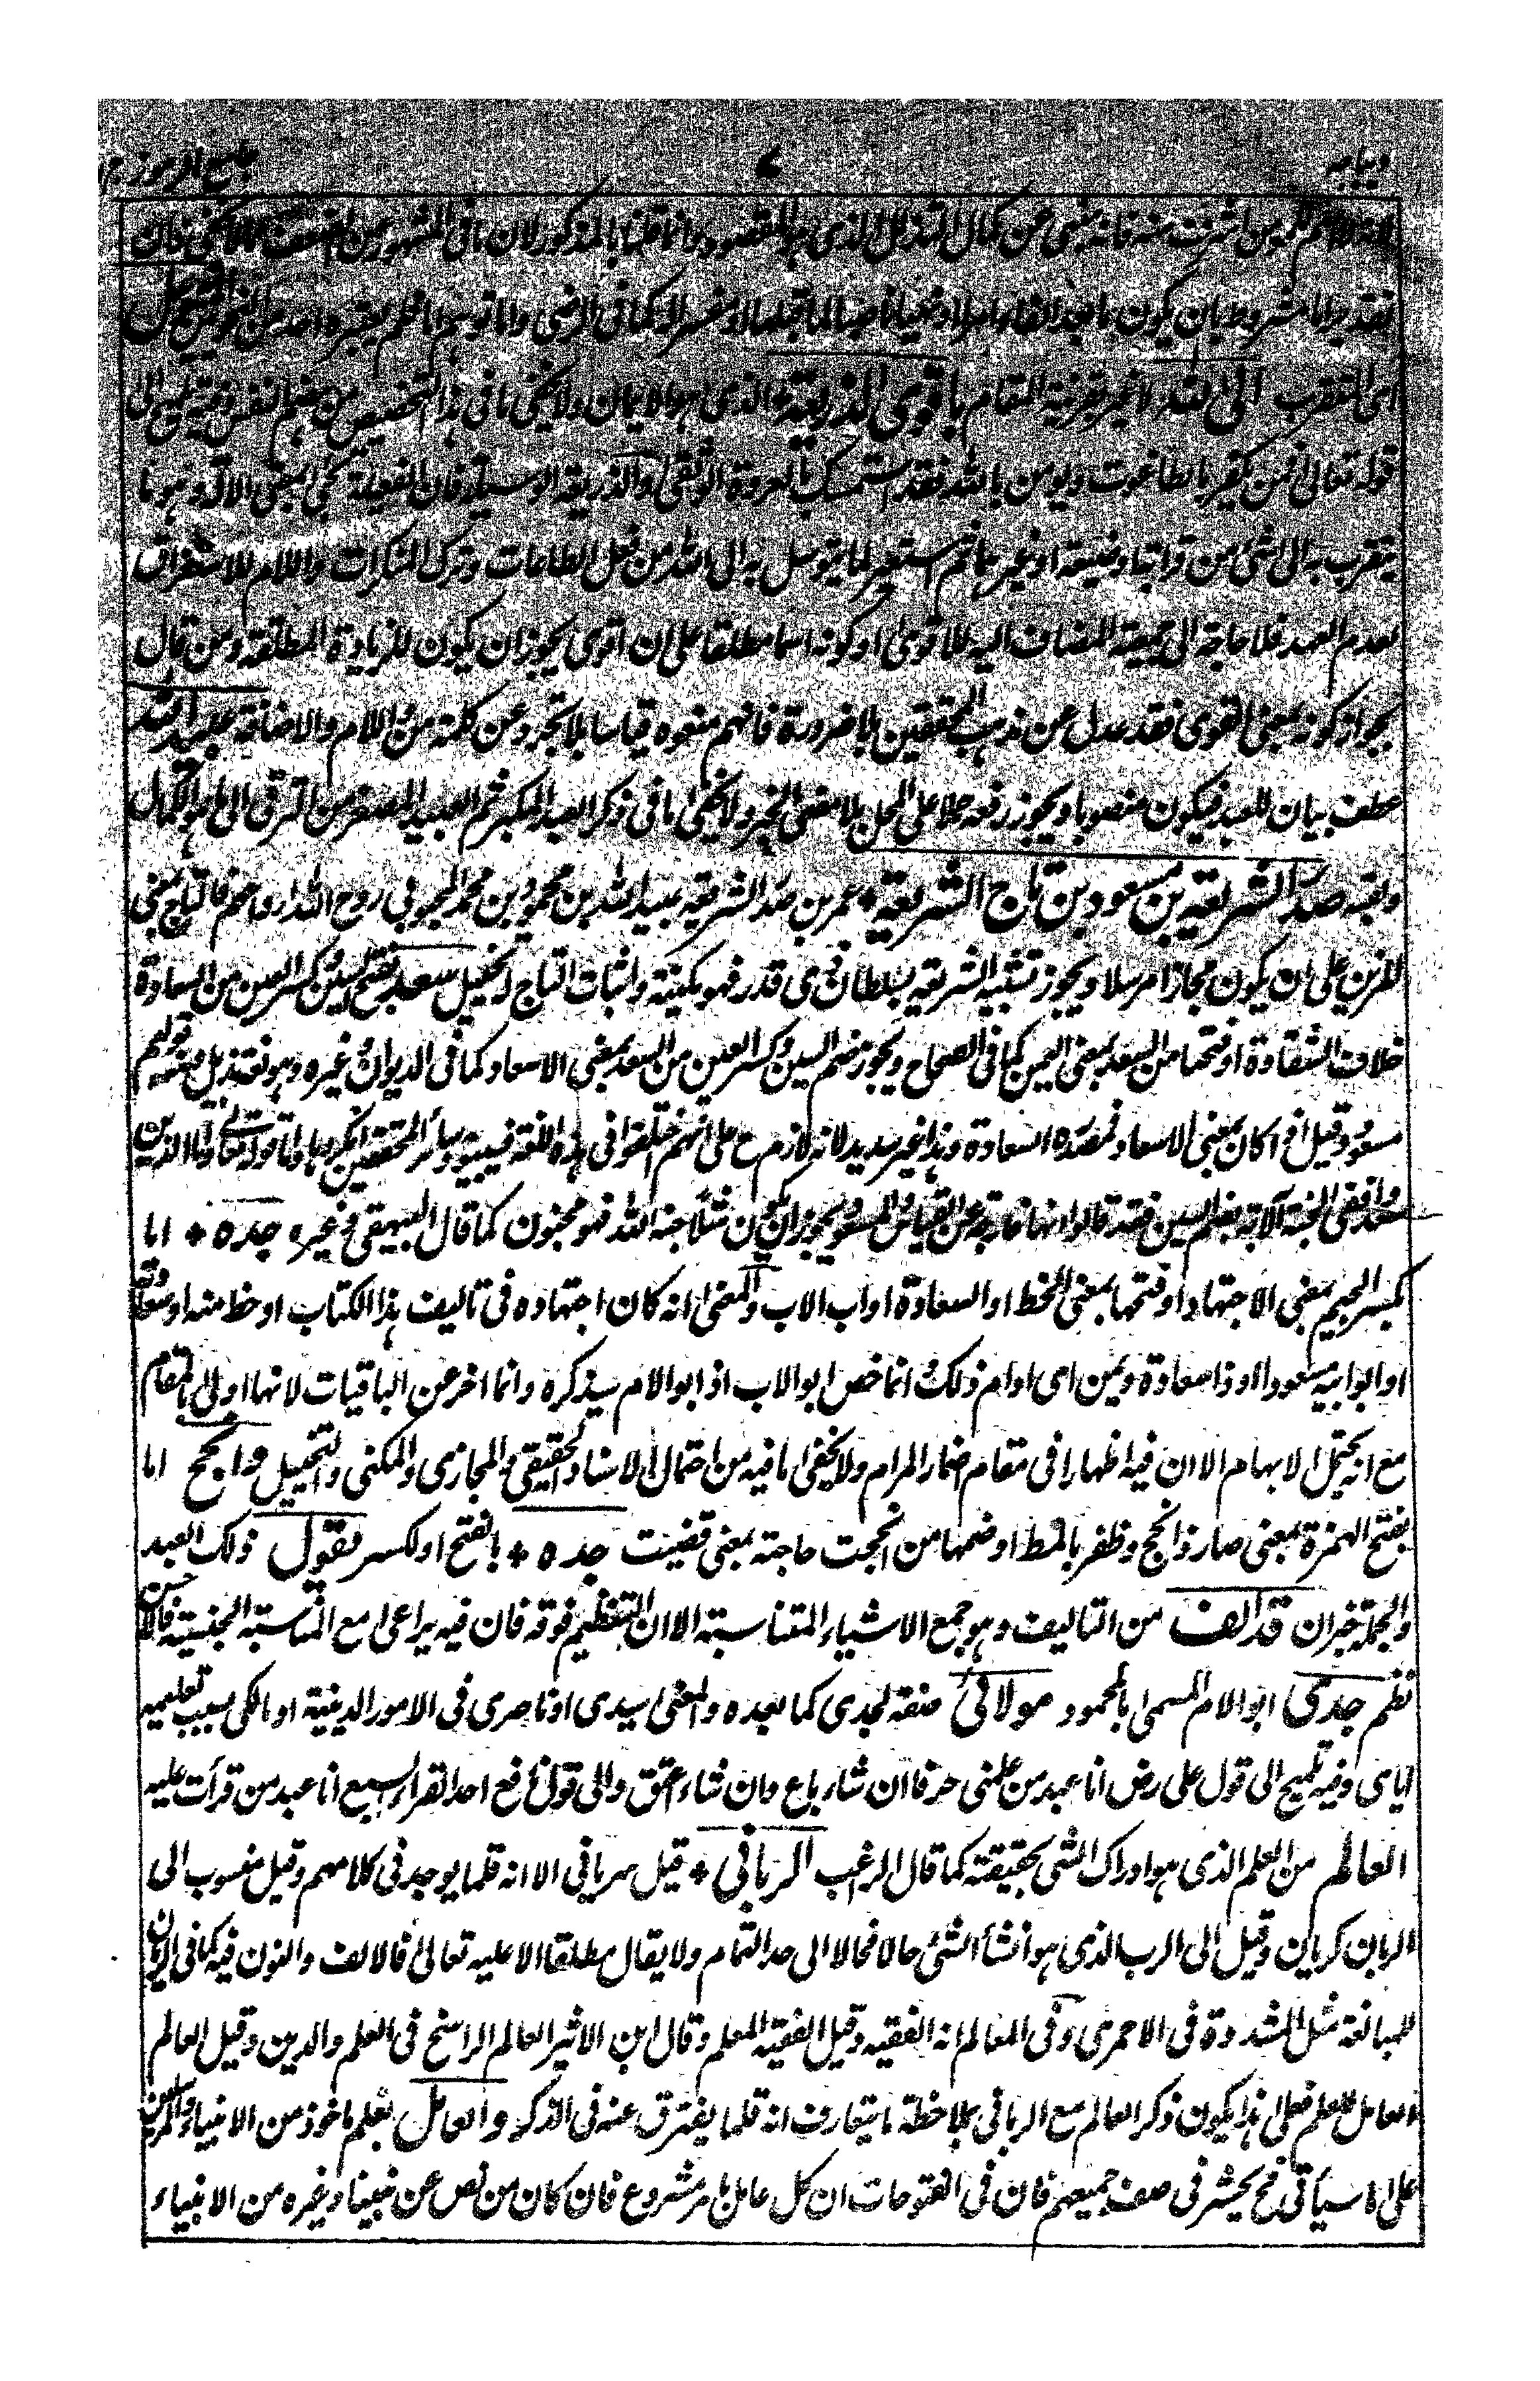 ديباجه ٤ جامع الرموز
فانه ينبئ عن كمال التذلل الذى هو المقصود وانما قلنا بالمذكور لان ما فى المشهور من الضعف مالا يخفى فان
تقديرا ما مشروط بان يكون ما بعد الفاء امرا او نهيا ناصبا لما قبلها او مفسرا له كما فى الرضى واما توهم اما فلم يعتبره احد من النحويين
اى المتقرب الى الله لا غير بقرينة المقام باقوى الذريعة الذى هو الايمان ولا يخفى ما فى هذا التخصيص من هضم النفس وفيه تلميح الى
قوله تعالى فمن يكفر بالطاغوت ويومن بالله فقد استمسك بالعروة الوثقى والذريعة الوسيلة فان الفعيلة تجئ بمعنى الآلة وهو ما
يتقرب به الى شئ من قرابة او صنيعة او غيرهما ثم استعير لما يتوسل به الى الله من فعل الطاعات وترك المنكرات واللام للاستغراق
لعدم العهد فلا حاجة الى جمعية المضاف اليه للاقوى او كونه اسما مطلقا على ان اقوى يجوز ان يكون للزيادة المطلقة ومن قال
بجواز كونه بمعنى القوى فقد عدل عن مذهب المحققين بلا ضرورة فانهم منعوه قياسا بلا تجرد عن كلمة من واللام والاضافة عبيد الله
عطف بيان للعبد فيكون منصوبا ويجوز رفعه حملا على المحل بلا مضى الخبر ولا يخفى ما فى ذكر العبد المكبر ثم العبيد المصغر من الترقى الى ما هو الكمال
ولقبه صدر الشريعة بن مسعود بن تاج الشريعة + عمر بن صدر الشريعة عبيد الله بن محمود بن محمد المحبوبى روح الله ارواحهم فالتاج بمعنى
المزين على ان يكون مجازا مرسلا ويجوز تشبيه الشريعة بسلطان ذى قدر فهو مكنية واثبات التاج تخييل سعد بفتح السين وكسر العين من السعادة
خلاف الشقاوة او فتحها من السعد بمعنى اليمن كما فى الصحاح ويجوز ضم السين وكسر العين من السعد بمعنى الاسعاد كما فى الديوان وغيره وهو لغة هذيل ومنه قولهم
مسعود وقيل اذا كان بمعنى الاسعاد فمصدره السعادة وهذا غير سديد لانه لازم ع على انهم اختلفوا فى هذه اللغة فسيبويه وسائر المحققين انكروها واما قوله تعالى واما الذين
سعدوا ففى الجنة الآية بضم السين فقد قالوا انها خارجة عن القياس والمسعود يجوز ان يكون مثل اجنه الله فهو مجنون كما قال البيهقى وغيره جده + اما
بكسر الجيم بمعنى الاجتهاد او فتحها بمعنى الحظ او السعادة او اب الاب والمعنى انه كان اجتهاده فى تاليف هذا الكتاب او حظ منه او سعادته
او ابو ابيه مسعودا او ذا سعادة ويمن اى ادام ذلك انما خص ابو الاب اذ ابو الام سيذكره وانما اخر عن الباقيات لانها اولى بالمقام
مع انه يحتمل الابهام الا ان فيه اظهارا فى مقام اضمار المرام ولا يخفى ما فيه من احتمال الاسناد الحقيقى والمجازى والمكنى والتخييل وانجح اما
بفتح الهمزة بمعنى صار ذا نجح وظفر بالمط او ضمها من انجحت حاجته بمعنى قضيت جده + بالفتح او الكسر يقول ذلك العبد
والجملة خبر ان قد الف من التاليف وهو جمع الاشياء المتناسبة الا ان التنظيم فوقه فان فيه يراعى مع المناسبة الجنسية فالاحسن
نظم جدى ابو الام المسمى بالمحمود مولائى صفة لجدى كما بعده والمعنى سيدى او ناصرى فى الامور الدينية او مالكى بسبب تعليمه
اياى وفيه تلميح الى قول على رض انا عبد من علمنى حرفا ان شاء باع وان شاء عتق والى قول نافع احد القراء السبع انا عبد من قرأت عليه
العالم من العلم الذى هو ادراك الشى بحقيقته كما قال الراغب الربانى + قيل سريانى الا انه قلما يوجد فى كلامهم وقيل منسوب الى
الربان كربان وقيل الى الرب الذى هو انشأ الشئ حالا فحالا الى حد التمام ولا يقال مطلقا الا عليه تعالى فالالف والنون فيه كما فى
للمبالغة مثل المشددة فى الاحمرى وفى المعالم انه الفقيه وقيل الفقيه المعلم وقال ابن الاثير العالم الراسخ فى العلم والدين وقيل العالم
العامل المعلم فعلى هذا يكون ذكر العالم مع الربانى بملاحظة ما يتعارف انه قلما يفترق عنه فى الذكر والعامل بعلم ماخوذ من الانبياء والمرسلين
على ما سيأتى فح يحشر فى صف جميعهم فان فى الفتوحات ان كل عامل بامر مشروع فان كان من نص عن نبينا وغيره من الانبياء